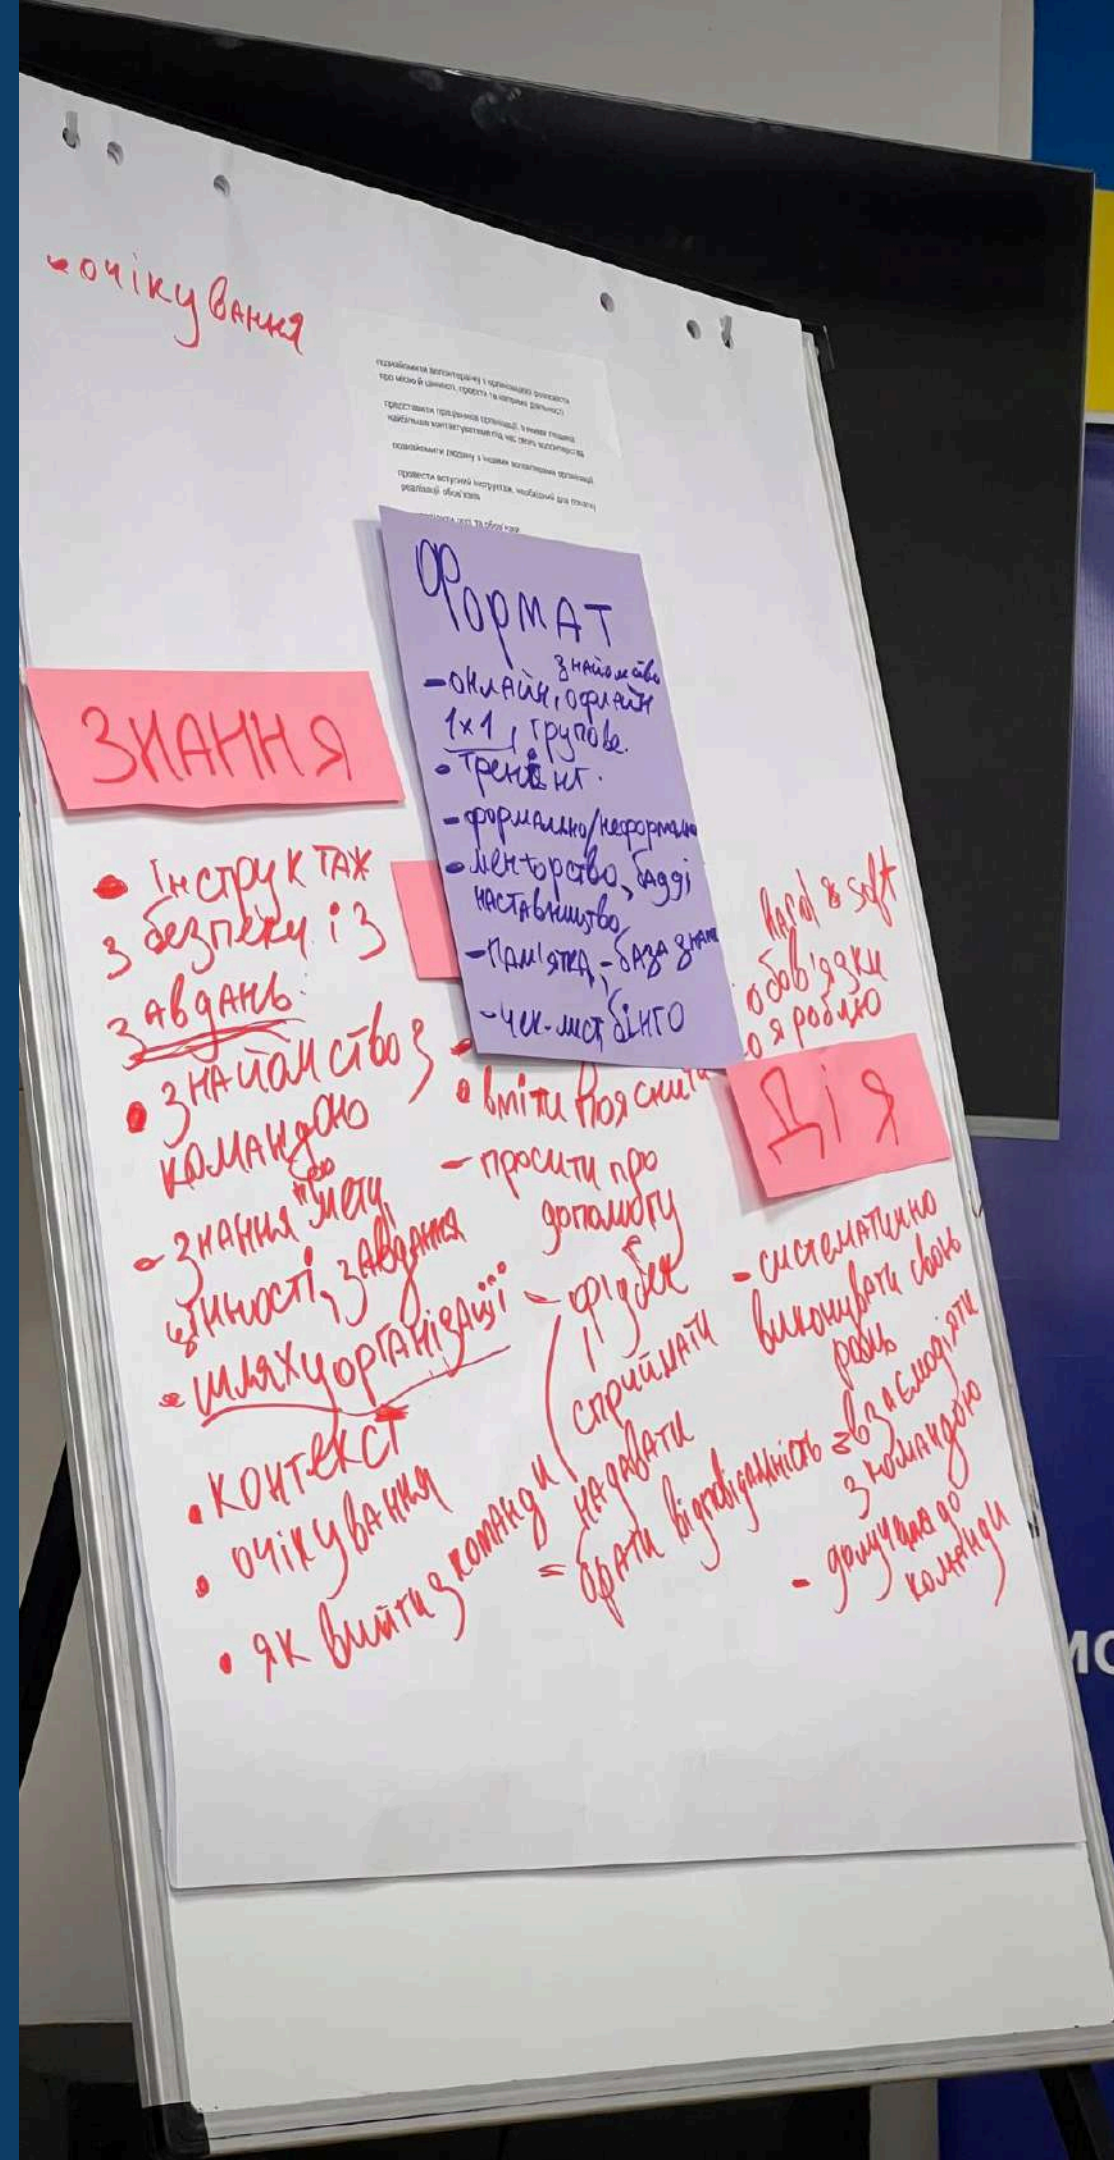 - очікування
познайомити волонтера/ку з організацією: розповісти
про місію й цінності, проєкти та напрями діяльності
представити працівників організації, з якими людина
найбільше контактуватиме під час свого волонтерства
познайомити людину з іншими волонтерами організації
провести вступний інструктаж, необхідний для початку
реалізації обов'язків
та обов'язки
Формат
знайомство
- онлайн, офлайн
1x1, групове.
• тренінг.
- формально/неформально
• менторство, бадді
наставництво,
- пам'ятка, - база знань
- чек-лист, бінго
ЗНАННЯ
• Інструктаж
з безпеки і з
завдань.
• знайомство з
командою
- знання про мету,
цінності, завдання
• шляху організації...
• контекст
• очікування
• як вийти з команди
• вміти пояснити
- просити про
допомогу
- фідбек
сприймати
надавати
= брати відповідальність
hard & soft
обов'язки
о я роблю
Дія
- систематично
виконувати свою
роль
= взаємодіяти
з командою
- долучати до
команди
МО